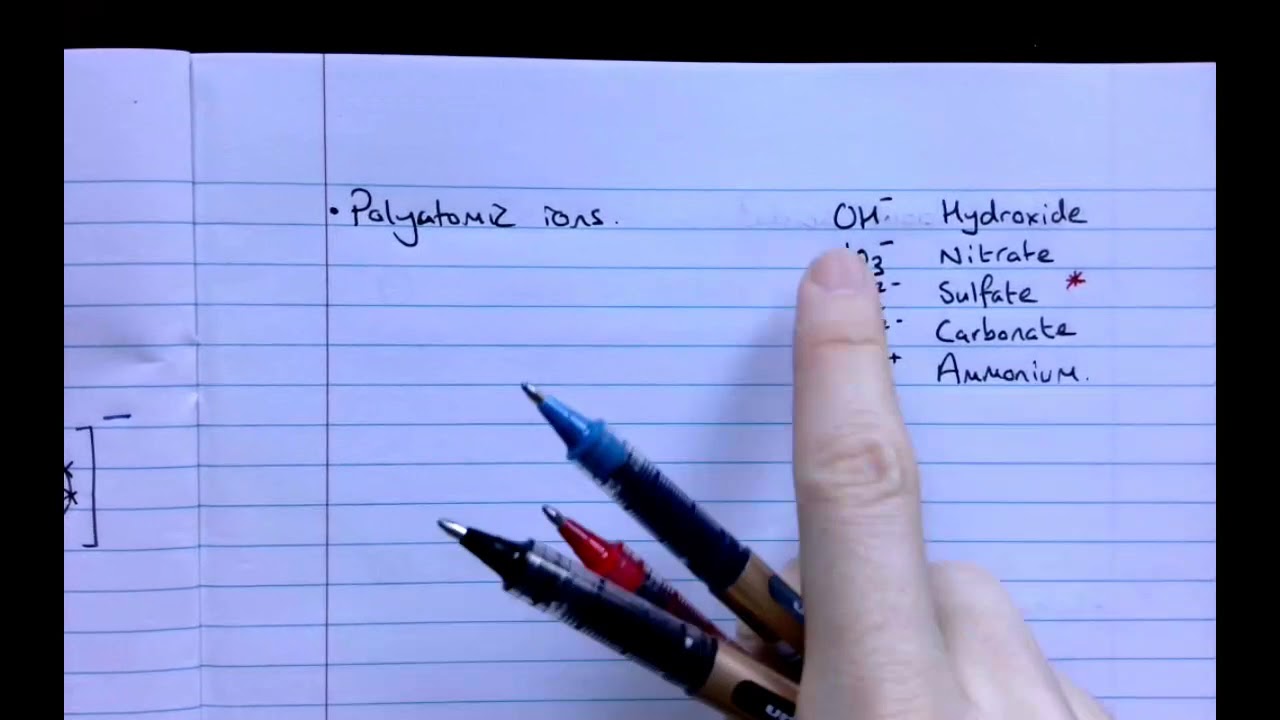 • Polyatomic ions.
OH⁻ Hydroxide
O₃⁻ Nitrate
²⁻ Sulfate *
⁻ Carbonate
⁺ Ammonium.